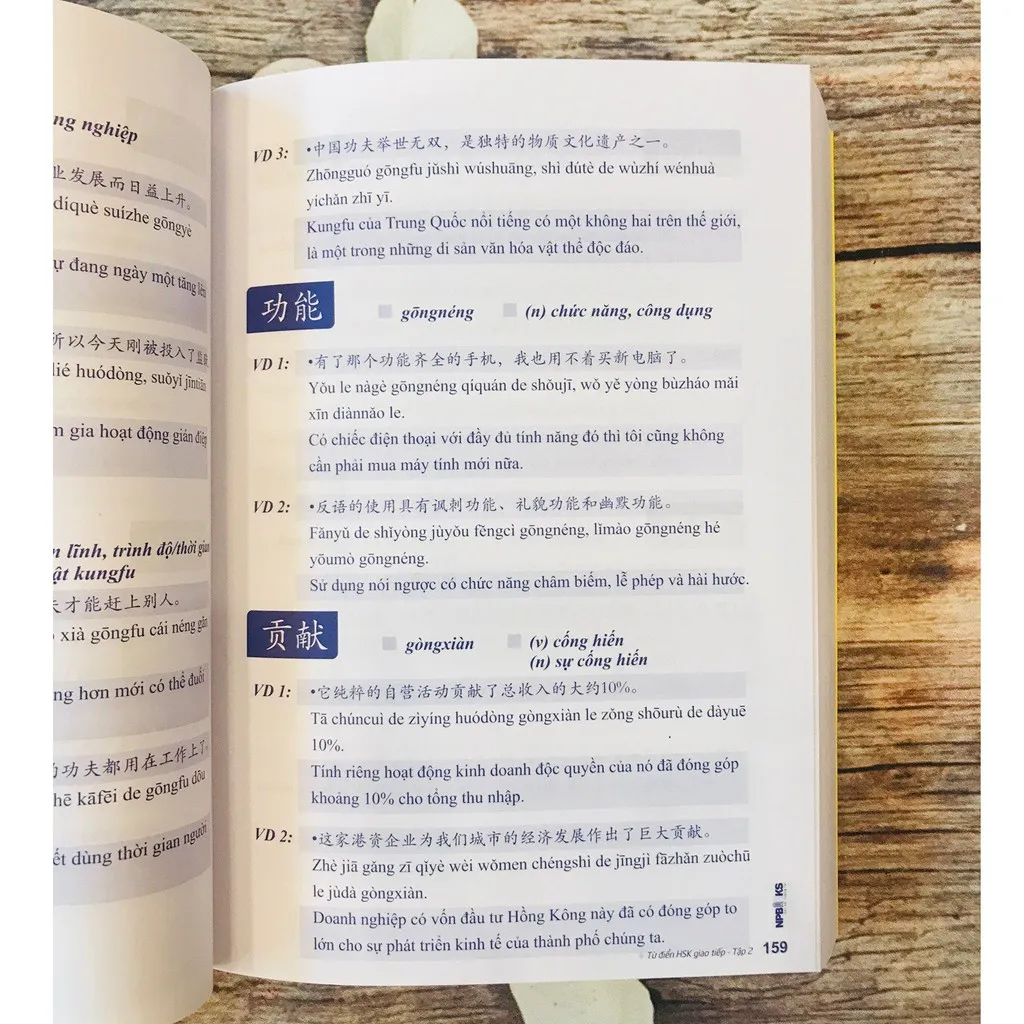 ng nghiệp
业发展而日益上升。
díquè suízhe gōngyè
ự đang ngày một tăng lên
所以今天刚被投入了监狱
lié huódòng, suǒyǐ jīntiān
m gia hoạt động gián điệp
n lĩnh, trình độ/thời gian
ật kungfu
夫才能赶上别人。
xià gōngfu cái néng gǎn
ng hơn mới có thể đuổi
的功夫都用在工作上了。
hē kāfēi de gōngfu dōu
ết dùng thời gian người
VD 3: •中国功夫举世无双，是独特的物质文化遗产之一。
Zhōngguó gōngfu jǔshì wúshuāng, shì dútè de wùzhí wénhuà
yíchǎn zhī yī.
Kungfu của Trung Quốc nổi tiếng có một không hai trên thế giới,
là một trong những di sản văn hóa vật thể độc đáo.
功能 gōngnéng (n) chức năng, công dụng
VD 1: •有了那个功能齐全的手机，我也用不着买新电脑了。
Yǒu le nàgè gōngnéng qíquán de shǒujī, wǒ yě yòng bùzháo mǎi
xīn diànnǎo le.
Có chiếc điện thoại với đầy đủ tính năng đó thì tôi cũng không
cần phải mua máy tính mới nữa.
VD 2: •反语的使用具有讽刺功能、礼貌功能和幽默功能。
Fǎnyǔ de shǐyòng jùyǒu fěngcì gōngnéng, lǐmào gōngnéng hé
yōumò gōngnéng.
Sử dụng nói ngược có chức năng châm biếm, lễ phép và hài hước.
贡献 gòngxiàn (v) cống hiến
(n) sự cống hiến
VD 1: •它纯粹的自营活动贡献了总收入的大约10%。
Tā chúncuì de zìyíng huódòng gòngxiàn le zǒng shōurù de dàyuē
10%.
Tính riêng hoạt động kinh doanh độc quyền của nó đã đóng góp
khoảng 10% cho tổng thu nhập.
VD 2: •这家港资企业为我们城市的经济发展作出了巨大贡献。
Zhè jiā gǎng zī qǐyè wèi wǒmen chéngshì de jīngjì fāzhǎn zuòchū
le jùdà gòngxiàn.
Doanh nghiệp có vốn đầu tư Hồng Kông này đã có đóng góp to
lớn cho sự phát triển kinh tế của thành phố chúng ta.
Từ điển HSK giao tiếp - Tập 2 159
NPBOOKS